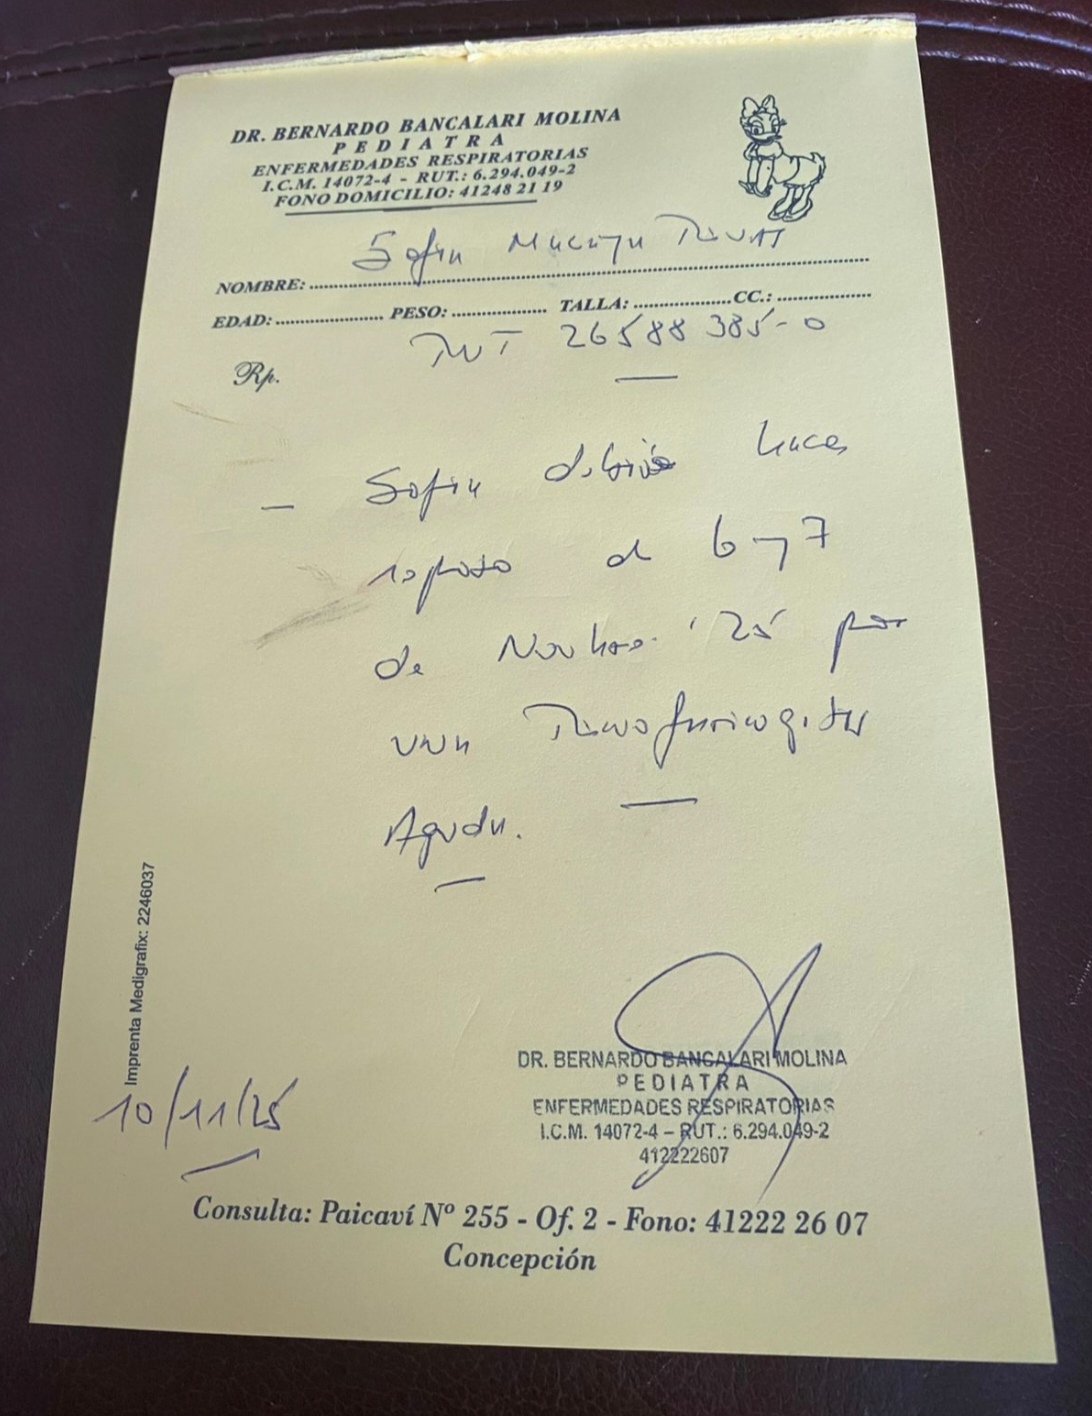 DR. BERNARDO BANCALARI MOLINA
PEDIATRA
ENFERMEDADES RESPIRATORIAS
I.C.M. 14072-4 - RUT.: 6.294.049-2
FONO DOMICILIO: 41248 21 19
NOMBRE: Sofia
EDAD: PESO: TALLA: CC.:
RUT 26588385-0
Rp.
- Sofia debió hacer
reposo el 6 y 7
de Novbre. '25 por
una Rinofaringitis
Aguda.
Imprenta Medigrafix: 2246037
10/11/25
DR. BERNARDO BANCALARI MOLINA
PEDIATRA
ENFERMEDADES RESPIRATORIAS
I.C.M. 14072-4 – RUT.: 6.294.049-2
412222607
Consulta: Paicaví Nº 255 - Of. 2 - Fono: 41222 26 07
Concepción